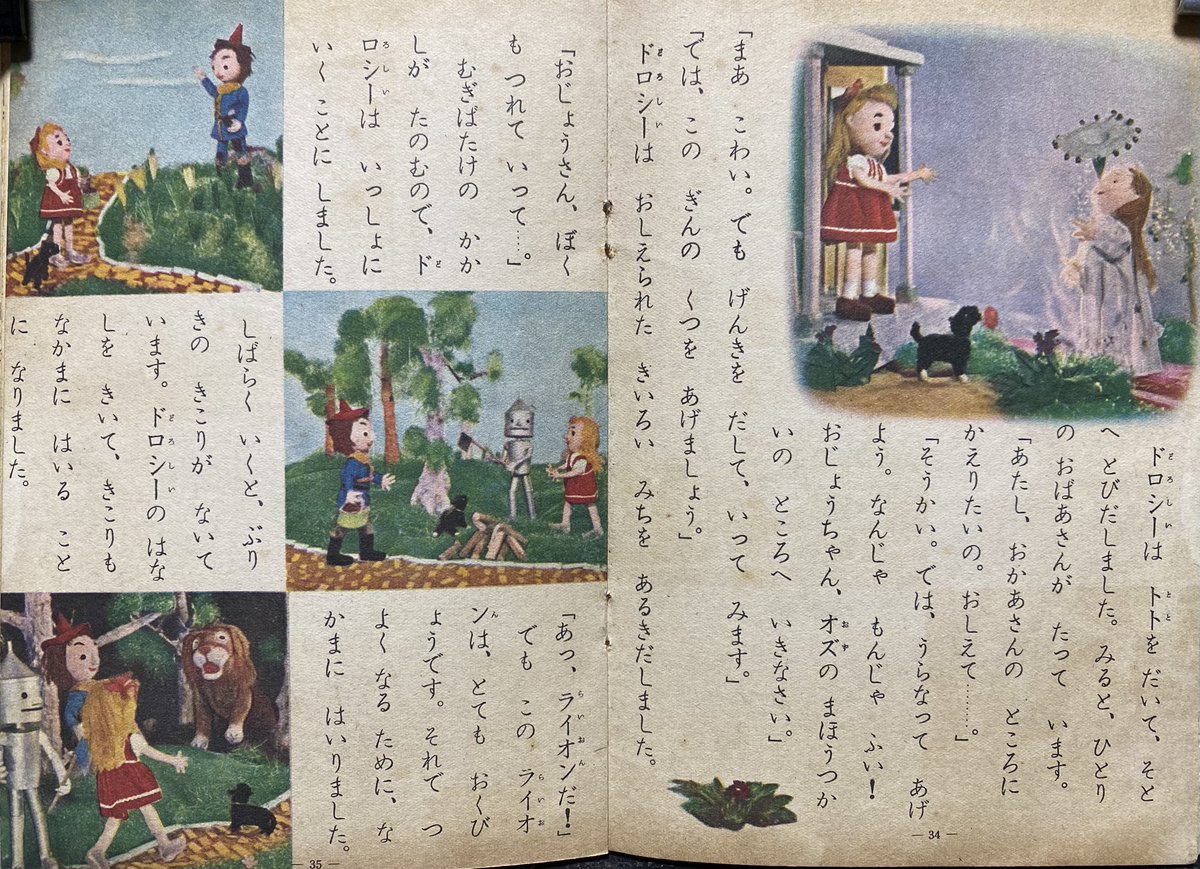 ドロシーは トトを だいて、そと
へ とびだしました。みると、ひとり
の おばあさんが たって います。
「あたし、おかあさんの ところに
かえりたいの。おしえて………。」
「そうかい。では、うらなって あげ
よう。なんじゃ もんじゃ ふい！
おじょうちゃん、オズの まほうつか
いの ところへ いきなさい。」
「まあ こわい。でも げんきを だして、いって みます。」
「では、この ぎんの くつを あげましょう。」
ドロシーは おしえられた きいろい みちを あるきだしました。
— 34 —
「おじょうさん、ぼく
も つれて いって……。」
むぎばたけの かか
しが たのむので、ド
ロシーは いっしょに
いく ことに しました。
しばらく いくと、ぶり
きの きこりが ないて
います。ドロシーの はな
しを きいて、きこりも
なかまに はいる こと
に なりました。
「あっ、ライオンだ！」
でも この ライオ
ンは、とても おくび
ょうです。それで つ
よく なる ために、な
かまに はいりました。
— 35 —